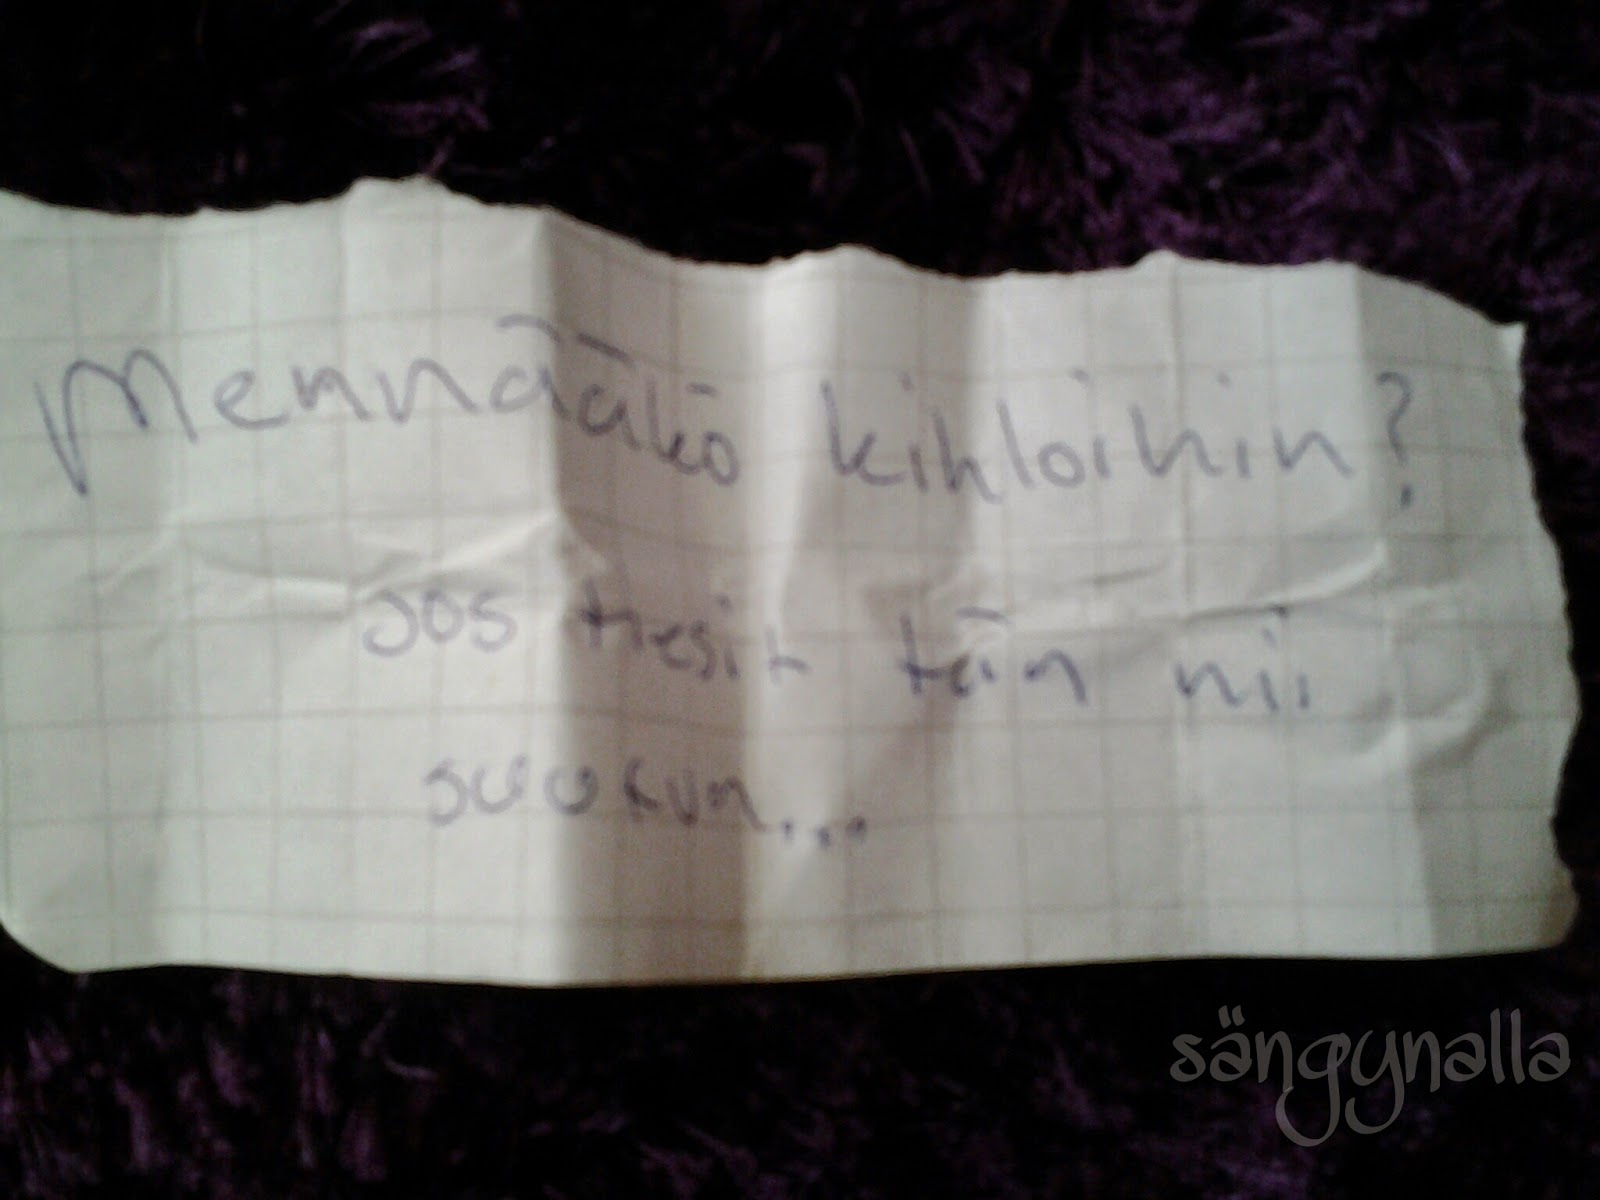 Mennääkö kihloihin?
Jos tiesit tän nii
suutun...
sängynalla